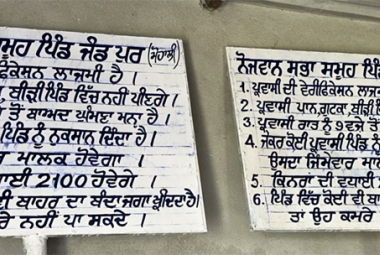 ਸਮੂਹ ਪਿੰਡ ਜੰਡ ਪੁਰ (ਮੋਹਾਲੀ)
ਲਾਜਮੀ ਹੈ ।
ਬੀੜੀ ਪਿੰਡ ਵਿੱਚ ਨਹੀਂ ਪੀਣਗੇ ।
ਤੋਂ ਬਾਅਦ ਘੁੰਮਣਾ ਮਨਾ ਹੈ ।
ਪਿੰਡ ਨੂੰ ਨੁਕਸਾਨ ਦਿੰਦਾ ਹੈ ।
ਮਾਲਕ ਹੋਵੇਗਾ ।
2100 ਹੋਵੇਗੇ ।
ਬਾਹਰ ਦਾ ਬੰਦਾ ਜਗਾ ਖ਼ੀਦਦਾ ਹੈ।
ਨਹੀਂ ਪਾ ਸਕਦੇ ।
ਨੋਜਵਾਨ ਸਭਾ ਸਮੂਹ ਪਿੰਡ
1. ਪ੍ਰਵਾਸੀ ਦੀ ਵੇਰੀਫਿਕੇਸ਼ਨ
2. ਪ੍ਰਵਾਸੀ ਪਾਨ,ਗੁਟਕਾ, ਬੀੜੀ
3. ਪ੍ਰਵਾਸੀ ਰਾਤ ਨੂੰ 9 ਵਜੇ ਤੋਂ
4. ਜੇਕਰ ਕੋਈ ਪ੍ਰਵਾਸੀ ਪਿੰਡ ਨੂੰ
ਉਸਦਾ ਜਿੰਮੇਵਾਰ
5. ਕਿਨਰਾਂ ਦੀ ਵਧਾਈ
6. ਪਿੰਡ ਵਿੱਚ ਕੋਈ ਵੀ
ਤਾਂ ਉਹ ਕਮਰੇ